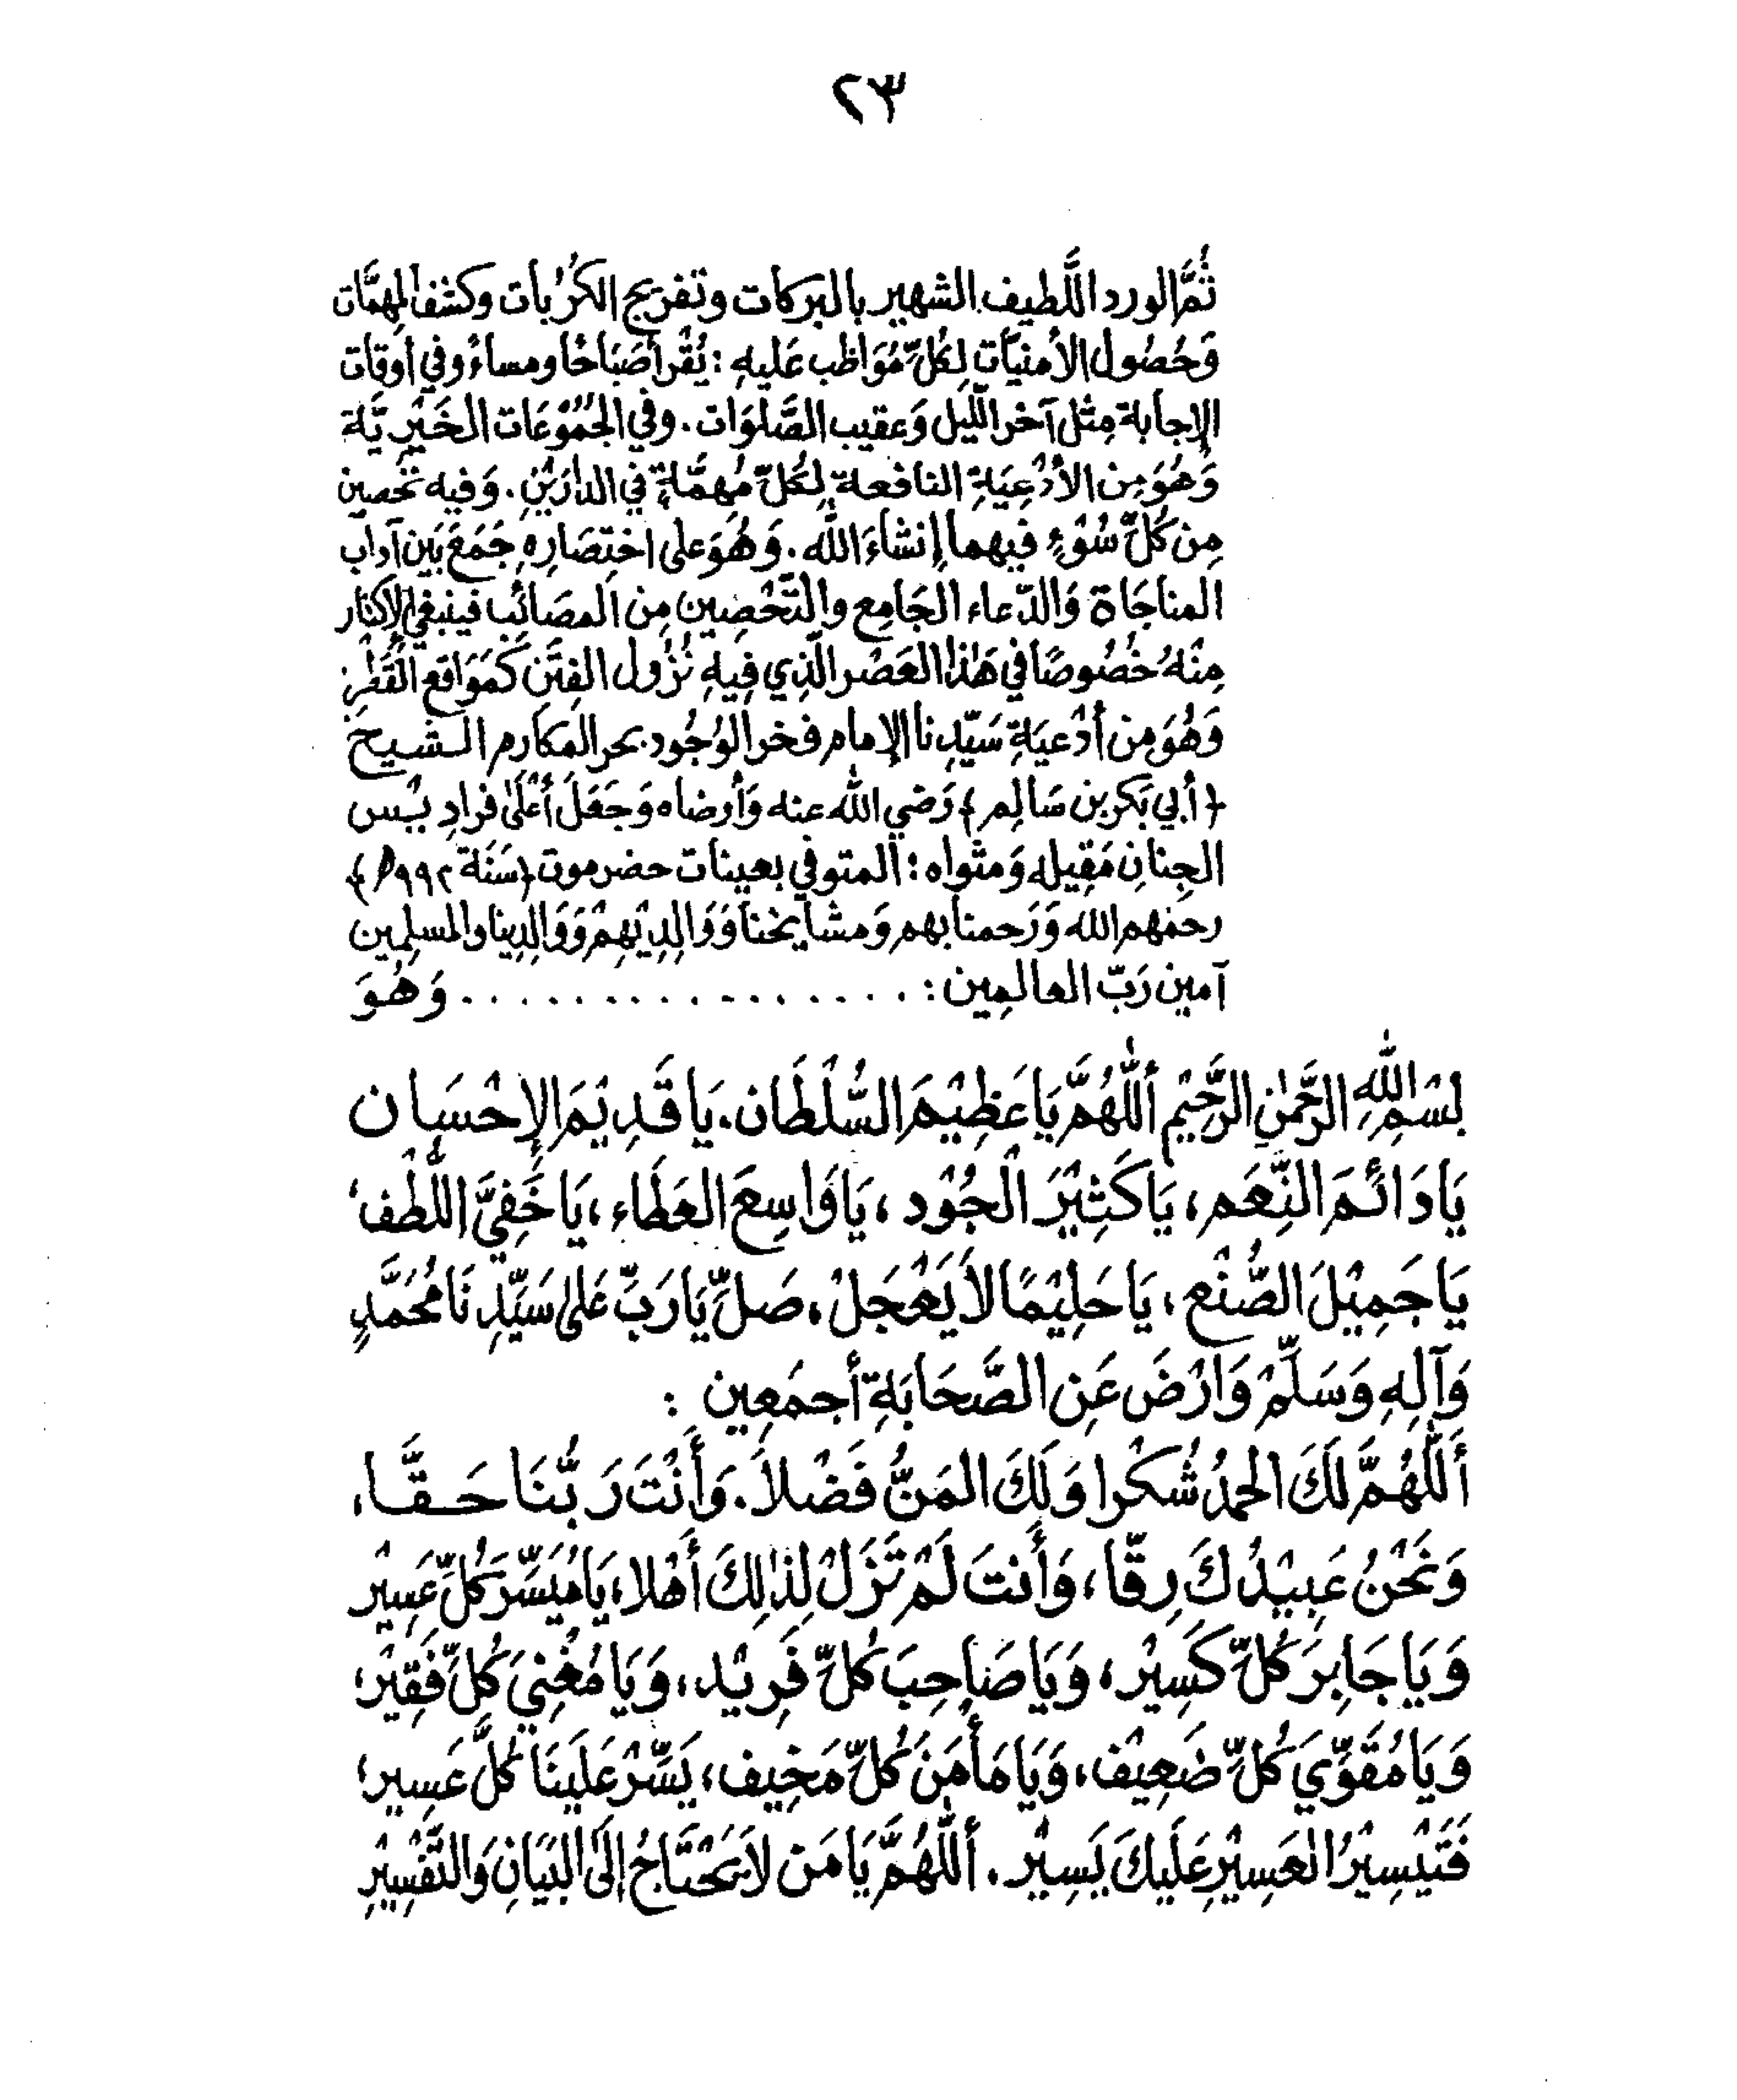 ٢٣
ثُمَّ الورد اللَّطيف الشهير بالبركات وتفريج الكُرُبات وكشف المهمَّات
وَحُصُول الأمنيَّات لِكُلِّ مُوَاظب عَليهِ : يُقْرأ صَبَاحًا ومساءً وفي أوقات
الإجابة مِثل آخر اللّيل وَعقيب الصَّلوَات . وفي الجُمُوْعَات الخَيْرِيَّة
وَهُوَ مِن الأدْعِيَةِ النافعة لِكُلِّ مُهِمَّةٍ في الدارَيْنِ . وَفيه تحصين
مِن كُلِّ سُوْءٍ فيهما إنشاءَ الله . وَهُوَ على اختِصَارِهِ جَمَعَ بَين آداب
المناجَاة وَالدّعاء الجَامِع والتَّحْصِين مِن المصَائب فينبغي الإكثار
مِنْهُ خُصُوصًا في هٰذا العَصْر الّذِي فِيهِ نُزُول الفِتَنِ كَمَوَاقع القَطْرِ
وَهُوَ مِن أدْعيَةِ سَيّدِنا الإمام فخر الوُجُود بحر المكارم الشيخ
﴿ أبي بَكر بن سَالِم ﴾ رَضي الله عنه وَأرضاه وَجَعَلَ أعْلَىٰ فرادِيْس
الجِنانِ مَقِيله وَمثواه : المتوفي بعينات حضرموت ﴿سَنَة ٩٩٢ه﴾
رحمَهم الله وَرَحمنا بهم وَمشايخنا وَوَالِدِيْهِمْ وَوَالِدِينا والمسلِمِين
آمين رَبّ العالمِين : . . . . . . . . . . . . . . . . وَهُوَ
بِسْمِ اللهِ الرَّحْمٰنِ الرَّحِيْمِ أَللّٰهُمَّ يَا عَظِيْمَ السُّلْطَان . يَا قَدِيْمَ الإِحْسَان
يَا دَائمَ النِّعَم ، يَا كَثِيْرَ الْجُوْد ، يَا وَاسِعَ العَطَاء ، يَا خَفِيَّ اللُّطْف ،
يَا جَمِيْلَ الصُّنْع ، يَا حَلِيْمًا لاَ يَعْجَلْ ، صَلِّ يَا رَبِّ عَلىٰ سَيِّدِنَا مُحَمَّدٍ
وَآلِهِ وَسَلِّمْ وَارْضَ عَنِ الصَّحَابَةِ أجمَعِين :
أَللّٰهُمَّ لَكَ الحمدُ شُكْرا وَلَكَ المَنُّ فَضْلاً . وَأَنْتَ رَبُّنَا حَقًّا ،
وَنَحْنُ عَبِيْدُكَ رِقّا ، وَأَنتَ لَمْ تَزَلْ لِذٰلِكَ أَهْلا ، يَا مُيَسِّرَ كُلِّ عَسِيْر
وَيَا جَابِرَ كُلِّ كَسِيْر ، وَيَا صَاحِبَ كُلِّ فَرِيْد ، وَيَا مُغْنِيَ كُلِّ فَقِيْر ،
وَيَا مُقَوِّيَ كُلِّ ضَعِيْف ، وَيَا مَأْمَنَ كُلِّ مَخِيف ، يَسِّرْ عَلَينَا كُلَّ عَسِير ،
فَتَيْسِيْرُ العَسِيْرِ عَلَيكَ يَسِيْر . أَللّٰهُمَّ يَا مَن لاَ يَحْتَاجُ إِلَى البَيَانِ وَالتَّفْسِيْرِ